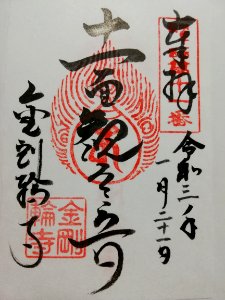 奉拝
令和三年
一月二十一日
十一面観世音
金剛輪寺
金剛
輪寺